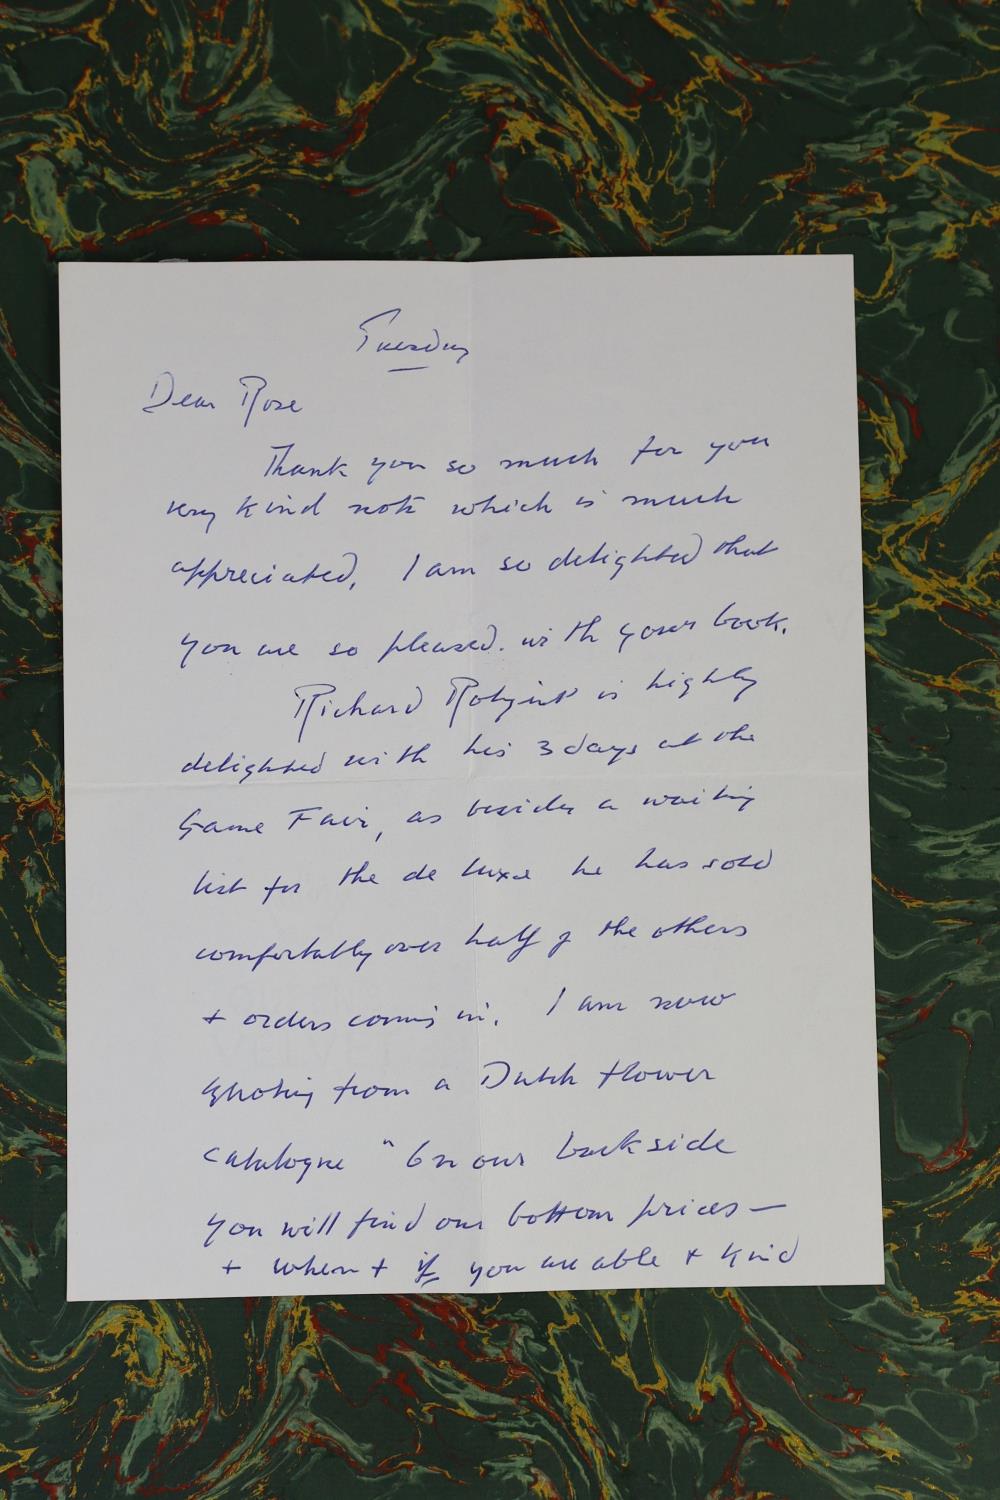 Tuesday
Dear Rose
Thank you so much for you
very kind note which is much
appreciated, I am so delighted that
you are so pleased. with your book.
Richard is highly
delighted with his 3 days at the
Game Fair, as besides a waiting
list for the de luxe he has sold
comfortably over half of the others
+ orders coming in. I am now
quoting from a Dutch flower
catalogue " On our backside
you will find our bottom prices —
+ when + if you are able + kind